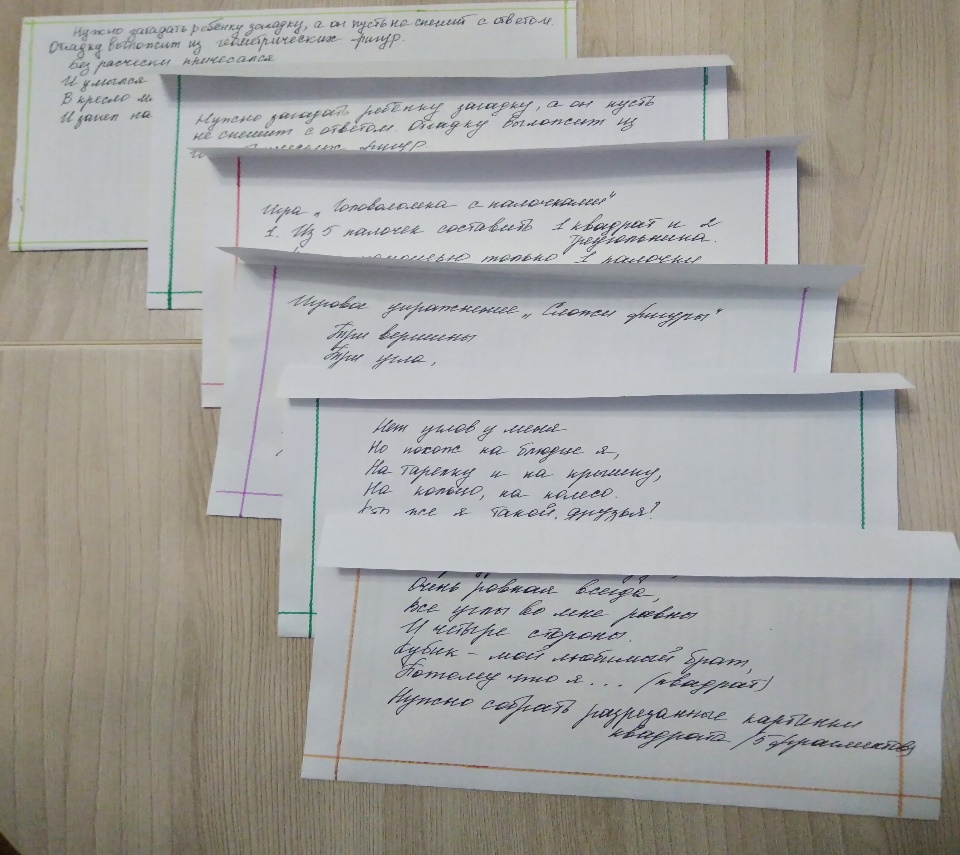 Нужно загадать ребенку загадку, а он пусть не спешит с ответом.
Отгадку выложит из геометрических фигур.
Без расчески причесался
И умылся
В кресло
И запел на
Нужно загадать ребенку загадку, а он пусть
не спешит с ответом. Отгадку выложит из
фигур.
Игра „Головоломка с палочками"
1. Из 5 палочек составить 1 квадрат и 2
треугольника.
помощью только 1 палочки
Игровое упражнение „Сложи фигуры"
Три вершины
Три угла,
Нет углов у меня
Но похож на блюдце я,
На тарелку и на крышку,
На кольцо, на колесо.
Кто же я такой, друзья?
Очень ровная всегда,
Все углы во мне равны
И четыре стороны.
Кубик - мой любимый брат,
Потому что я... (квадрат)
Нужно собрать разрезанные картинки
квадрата /5 фрагментов/